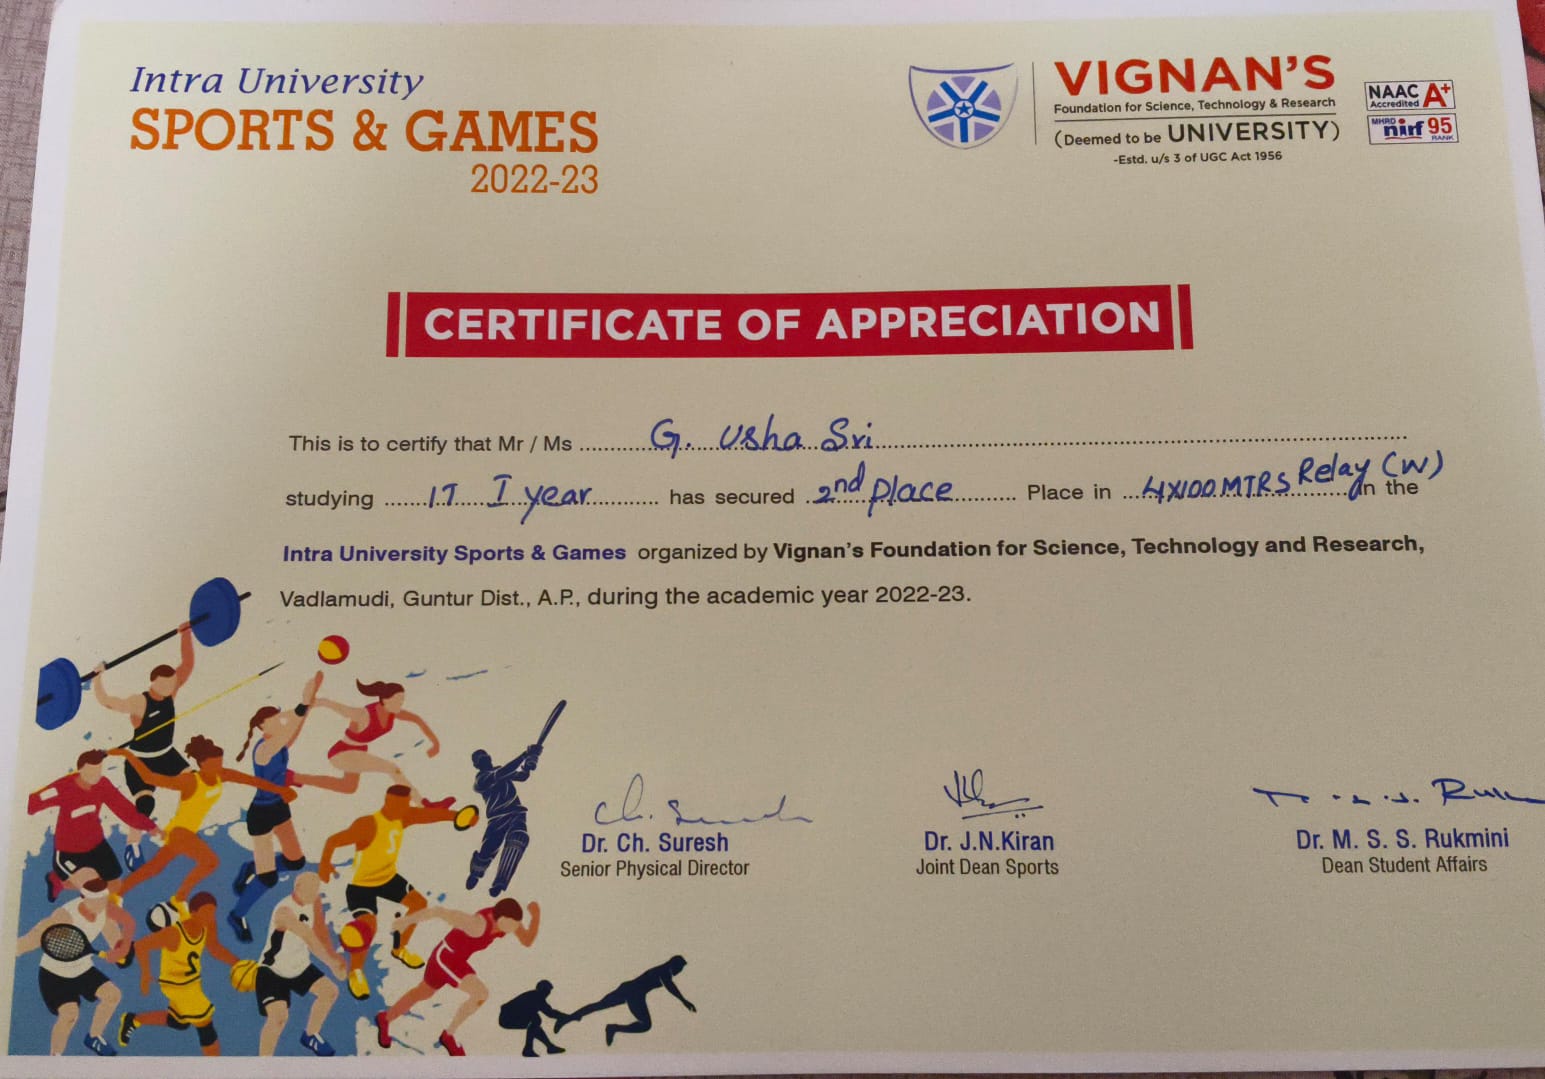 Intra University
SPORTS & GAMES
2022-23
VIGNAN'S
Foundation for Science, Technology & Research
(Deemed to be UNIVERSITY)
-Estd. u/s 3 of UGC Act 1956
NAAC A+
Accredited
MHRD nirf 95
RANK
CERTIFICATE OF APPRECIATION
This is to certify that Mr / Ms G. Usha Sri
studying IT I year has secured 2nd place Place in 4x100 MTRS Relay (W) in the
Intra University Sports & Games organized by Vignan's Foundation for Science, Technology and Research,
Vadlamudi, Guntur Dist., A.P., during the academic year 2022-23.
Ch. Suresh
Dr. Ch. Suresh
Senior Physical Director
Dr. J.N.Kiran
Joint Dean Sports
Dr. M. S. S. Rukmini
Dean Student Affairs
2
2